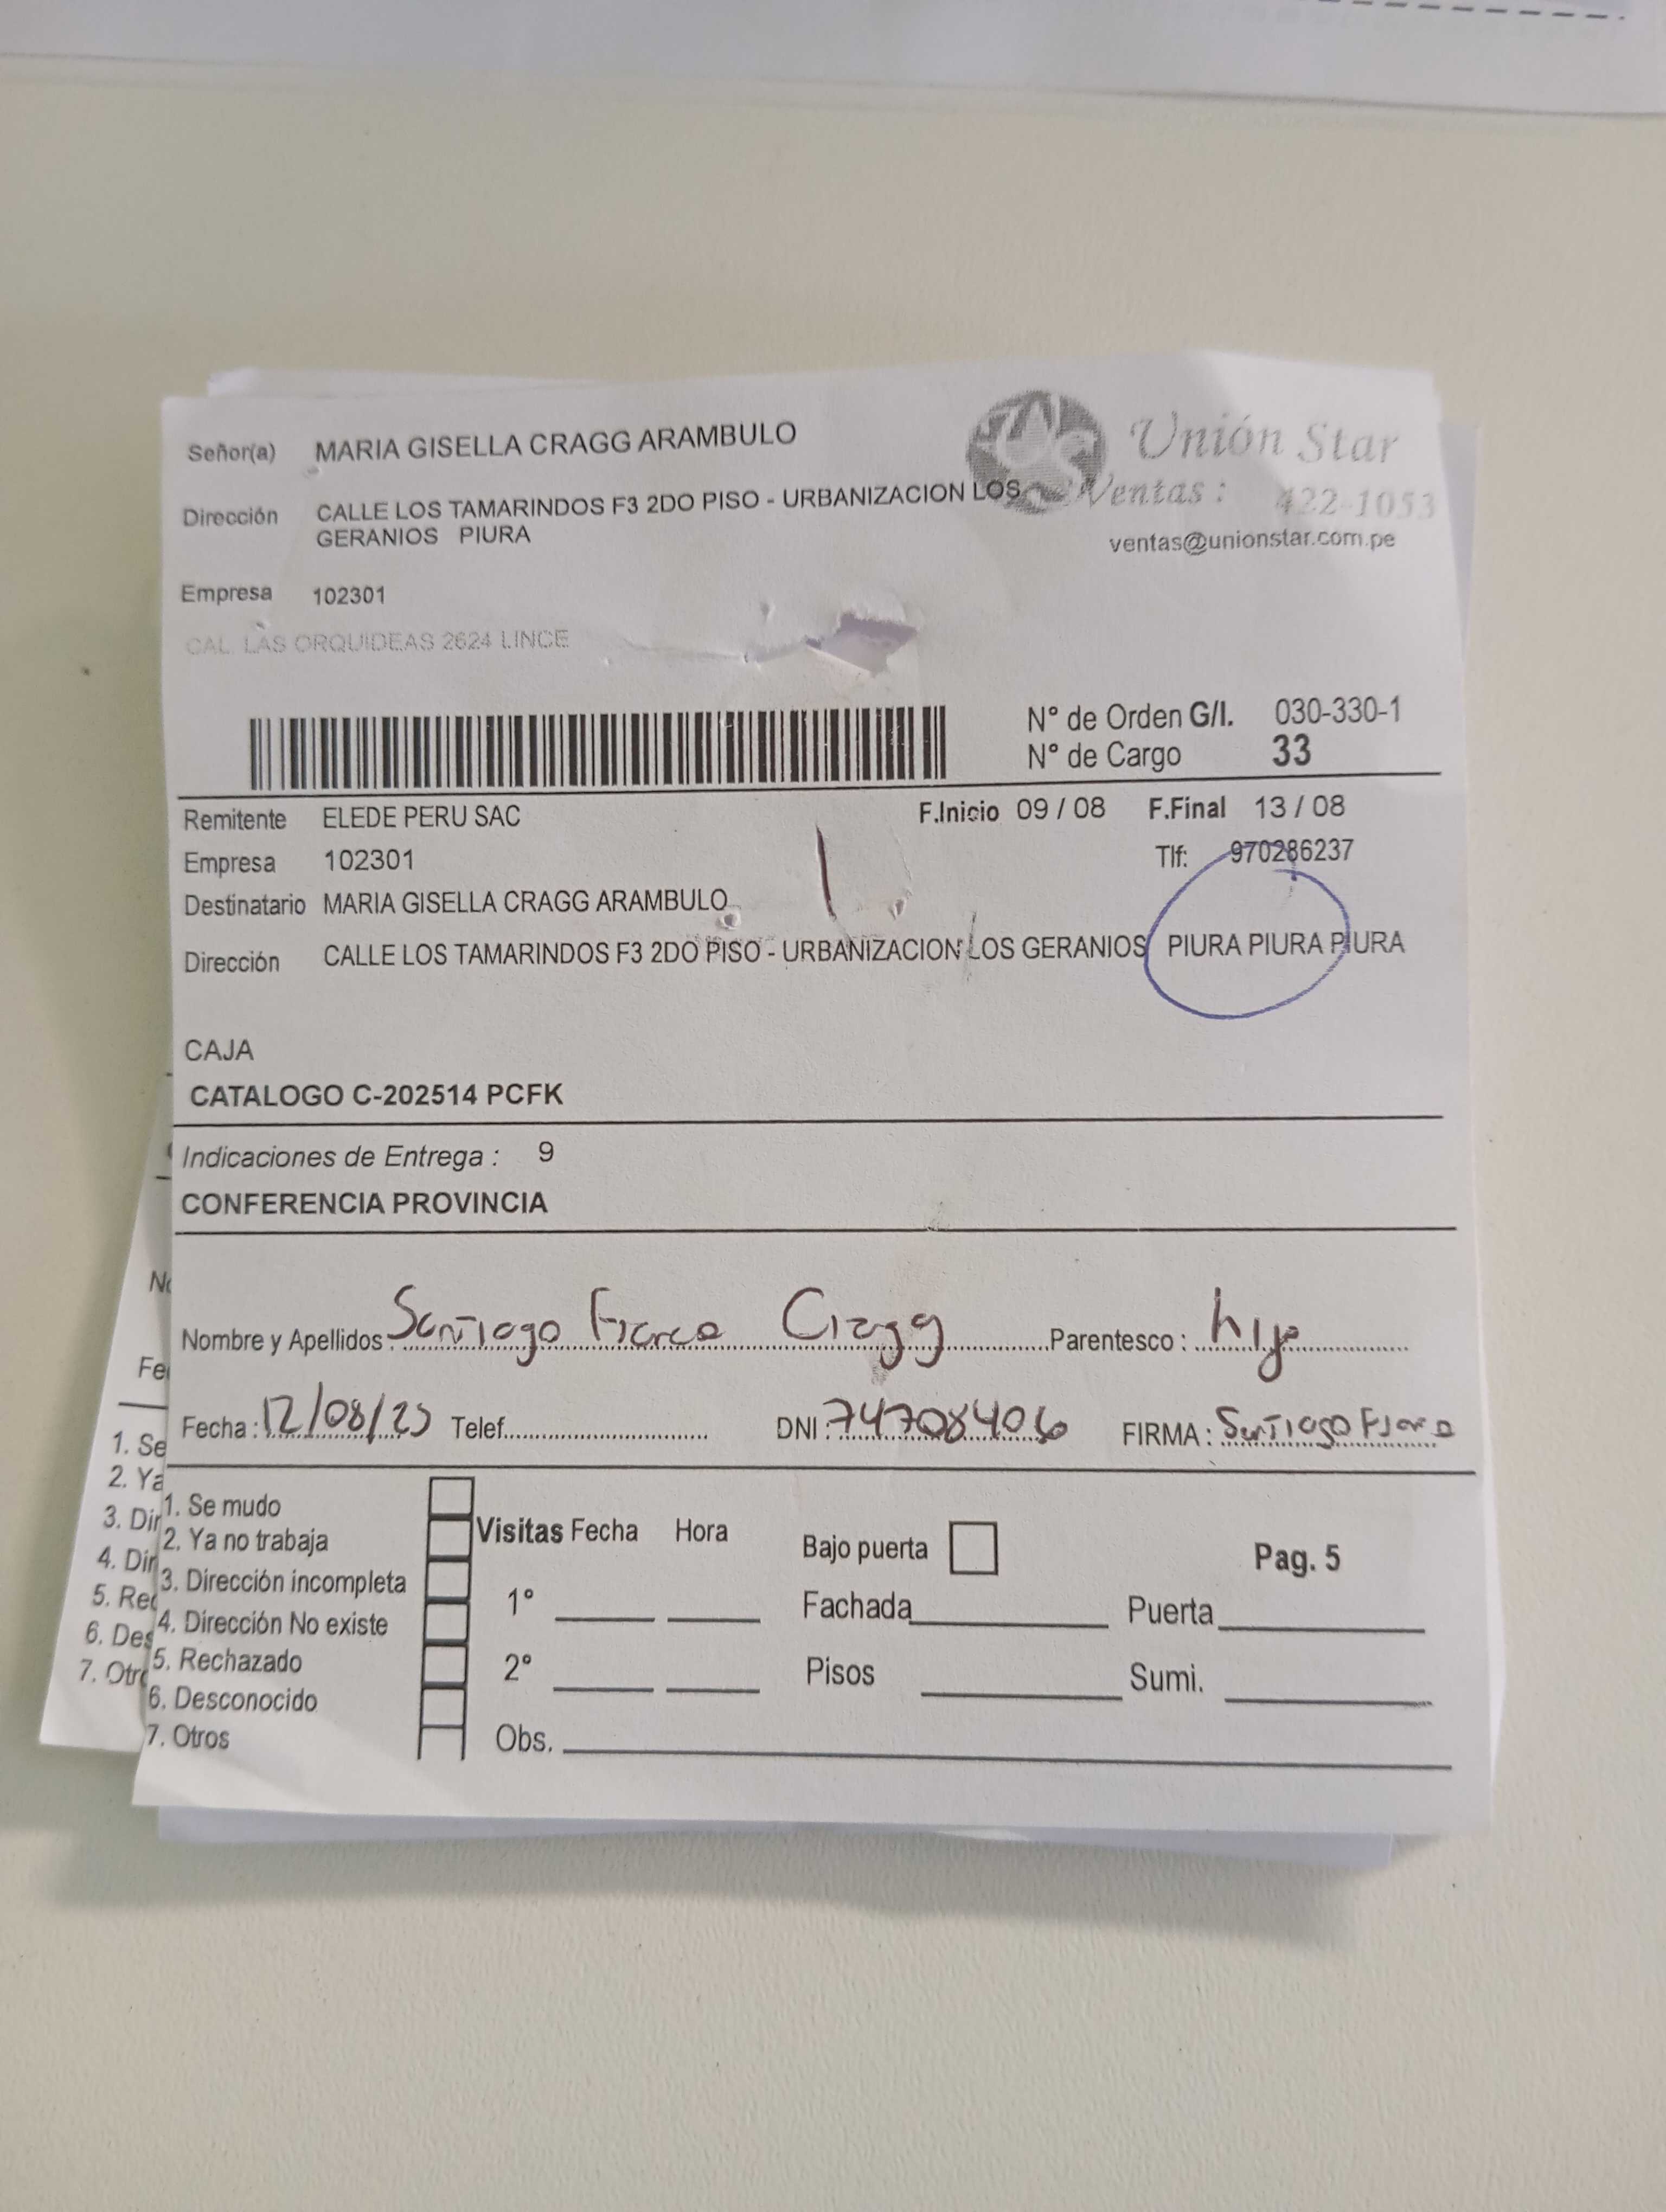 Señor(a) MARIA GISELLA CRAGG ARAMBULO
Unión Star
Dirección CALLE LOS TAMARINDOS F3 2DO PISO - URBANIZACION LOS
GERANIOS PIURA
Ventas : 422-1053
ventas@unionstar.com.pe
Empresa 102301
CAL. LAS ORQUIDEAS 2624 LINCE
N° de Orden G/I. 030-330-1
N° de Cargo 33
Remitente ELEDE PERU SAC F.Inicio 09 / 08 F.Final 13 / 08
Empresa 102301 Tlf: 970286237
Destinatario MARIA GISELLA CRAGG ARAMBULO
Dirección CALLE LOS TAMARINDOS F3 2DO PISO - URBANIZACION LOS GERANIOS PIURA PIURA PIURA
CAJA
CATALOGO C-202514 PCFK
Indicaciones de Entrega : 9
CONFERENCIA PROVINCIA
Nombre y Apellidos : Santiago Cragg Parentesco : hijo
Fecha : 12/08/25 Telef. DNI : FIRMA : Santiago
1. Se mudo
2. Ya no trabaja
3. Dirección incompleta
4. Dirección No existe
5. Rechazado
6. Desconocido
7. Otros
Visitas Fecha Hora
1°
2°
Obs.
Bajo puerta
Pag. 5
Fachada Puerta
Pisos Sumi.
No
Fe
1. Se
2. Ya
3. Dir
4. Dir
5. Rec
6. Des
7. Otro